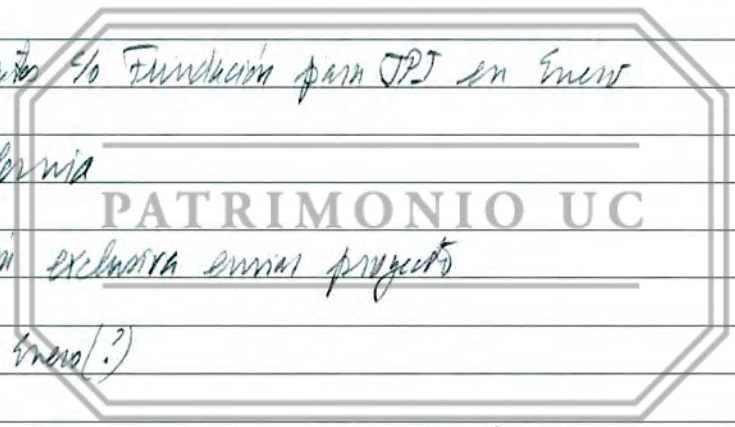 c/o Fundación para JPI en Enero
PATRIMONIO UC
exclusiva enviar proyecto
Enero(?)